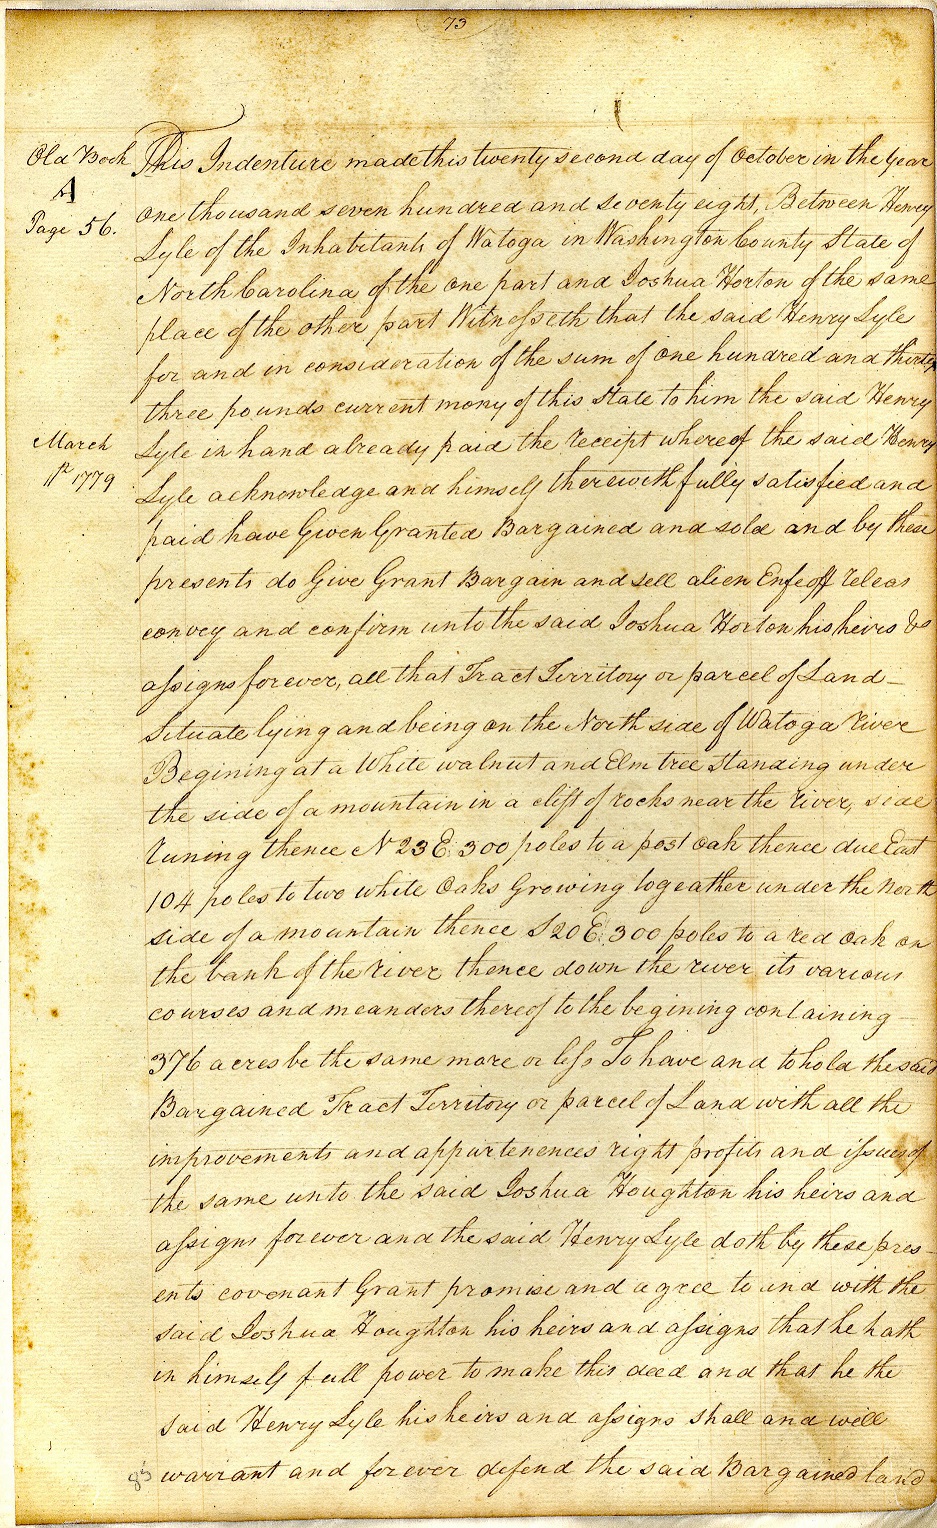 73
Old Book
A
Page 56.
This Indenture made this twenty second day of October in the year
one thousand seven hundred and seventy eight, Between Henry
Lyle of the Inhabitants of Watoga in Washington County State of
North Carolina of the one part and Joshua Horton of the same
place of the other part Witnesseth that the said Henry Lyle
for and in consideration of the sum of one hundred and thirty
three pounds current mony of this State to him the said Henry
March
1st 1779
Lyle in hand already paid the receipt whereof the said Henry
Lyle acknowledge and himself therewith fully satisfied and
paid have Given Granted Bargained and sold and by these
presents do Give Grant Bargain and sell alien Enfeoff releas
convey and confirm unto the said Joshua Horton his heirs &
assigns forever, all that Tract Territory or parcel of Land—
Situate lying and being on the North side of Watoga river
Begining at a White walnut and Elm tree standing under
the side of a mountain in a clift of rocks near the river, side
runing thence N 23 E. 300 poles to a post oak thence due East
104 poles to two white Oaks Growing togeather under the north
side of a mountain thence S 20 E. 300 poles to a red oak on
the bank of the river thence down the river its various
courses and meanders thereof to the begining containing—
376 acres be the same more or less To have and to hold the said
Bargained Tract Territory or parcel of Land with all the
improvements and appurtenences right profits and issues of
the same unto the said Joshua Houghton his heirs and
assigns forever and the said Henry Lyle doth by these pres-
ents covenant Grant promise and agree to and with the
said Joshua Houghton his heirs and assigns that he hath
in himself full power to make this deed and that he the
said Henry Lyle his heirs and assigns shall and will
warrant and forever defend the said Bargained land